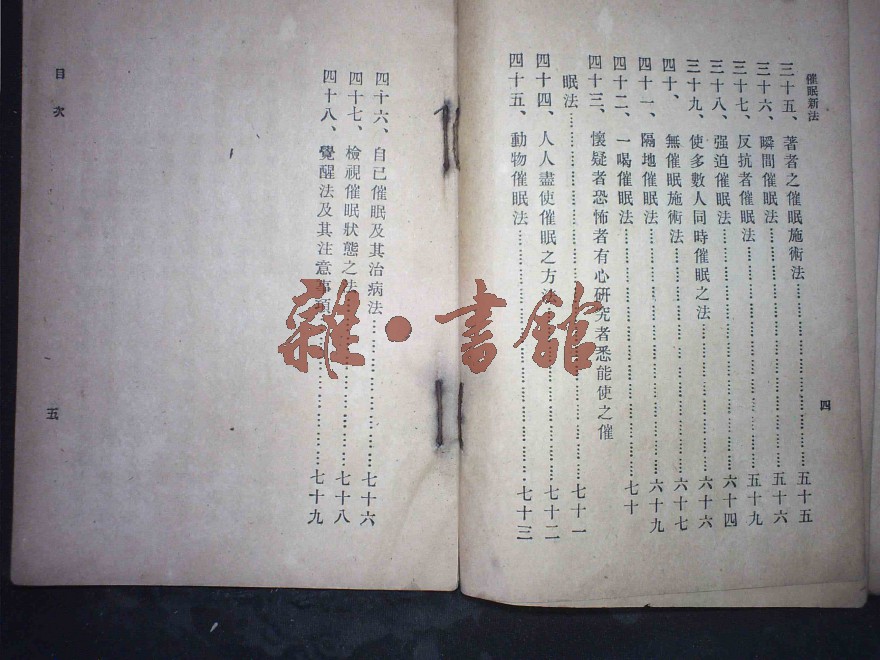 催眠新法
三十五、著者之催眠施術法……五十五
三十六、瞬間催眠法……五十六
三十七、反抗者催眠法……五十九
三十八、强迫催眠法……六十四
三十九、使多數人同時催眠之法……六十六
四十、無催眠施術法……六十七
四十一、隔地催眠法……六十九
四十二、一喝催眠法……七十
四十三、懷疑者恐怖者有心研究者悉能使之催
眠法……七十一
四十四、人人盡使催眠之方法……七十二
四十五、動物催眠法……七十三
四
四十六、自己催眠及其治病法……七十六
四十七、檢視催眠狀態之法……七十八
四十八、覺醒法及其注意事項……七十九
目次
五
雜·書館